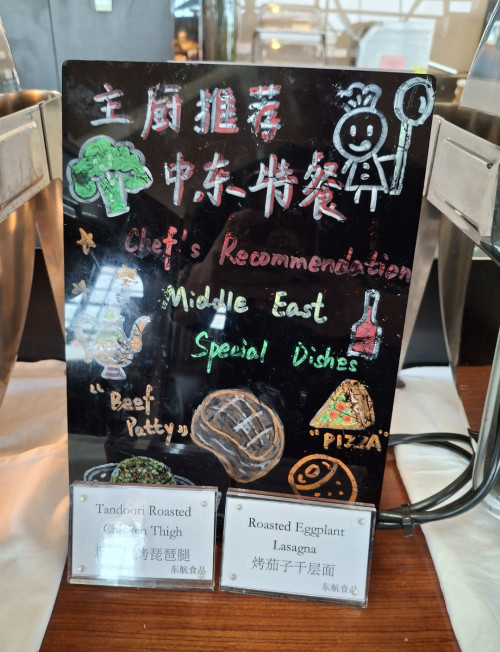 主厨推荐
中东特餐
Chef's Recommendation
Middle East
Special Dishes
"Beef
Patty"
"PIZZA"
Tandoori Roasted
Chicken Thigh
烤琵琶腿
东航食品
Roasted Eggplant
Lasagna
烤茄子千层面
东航食品